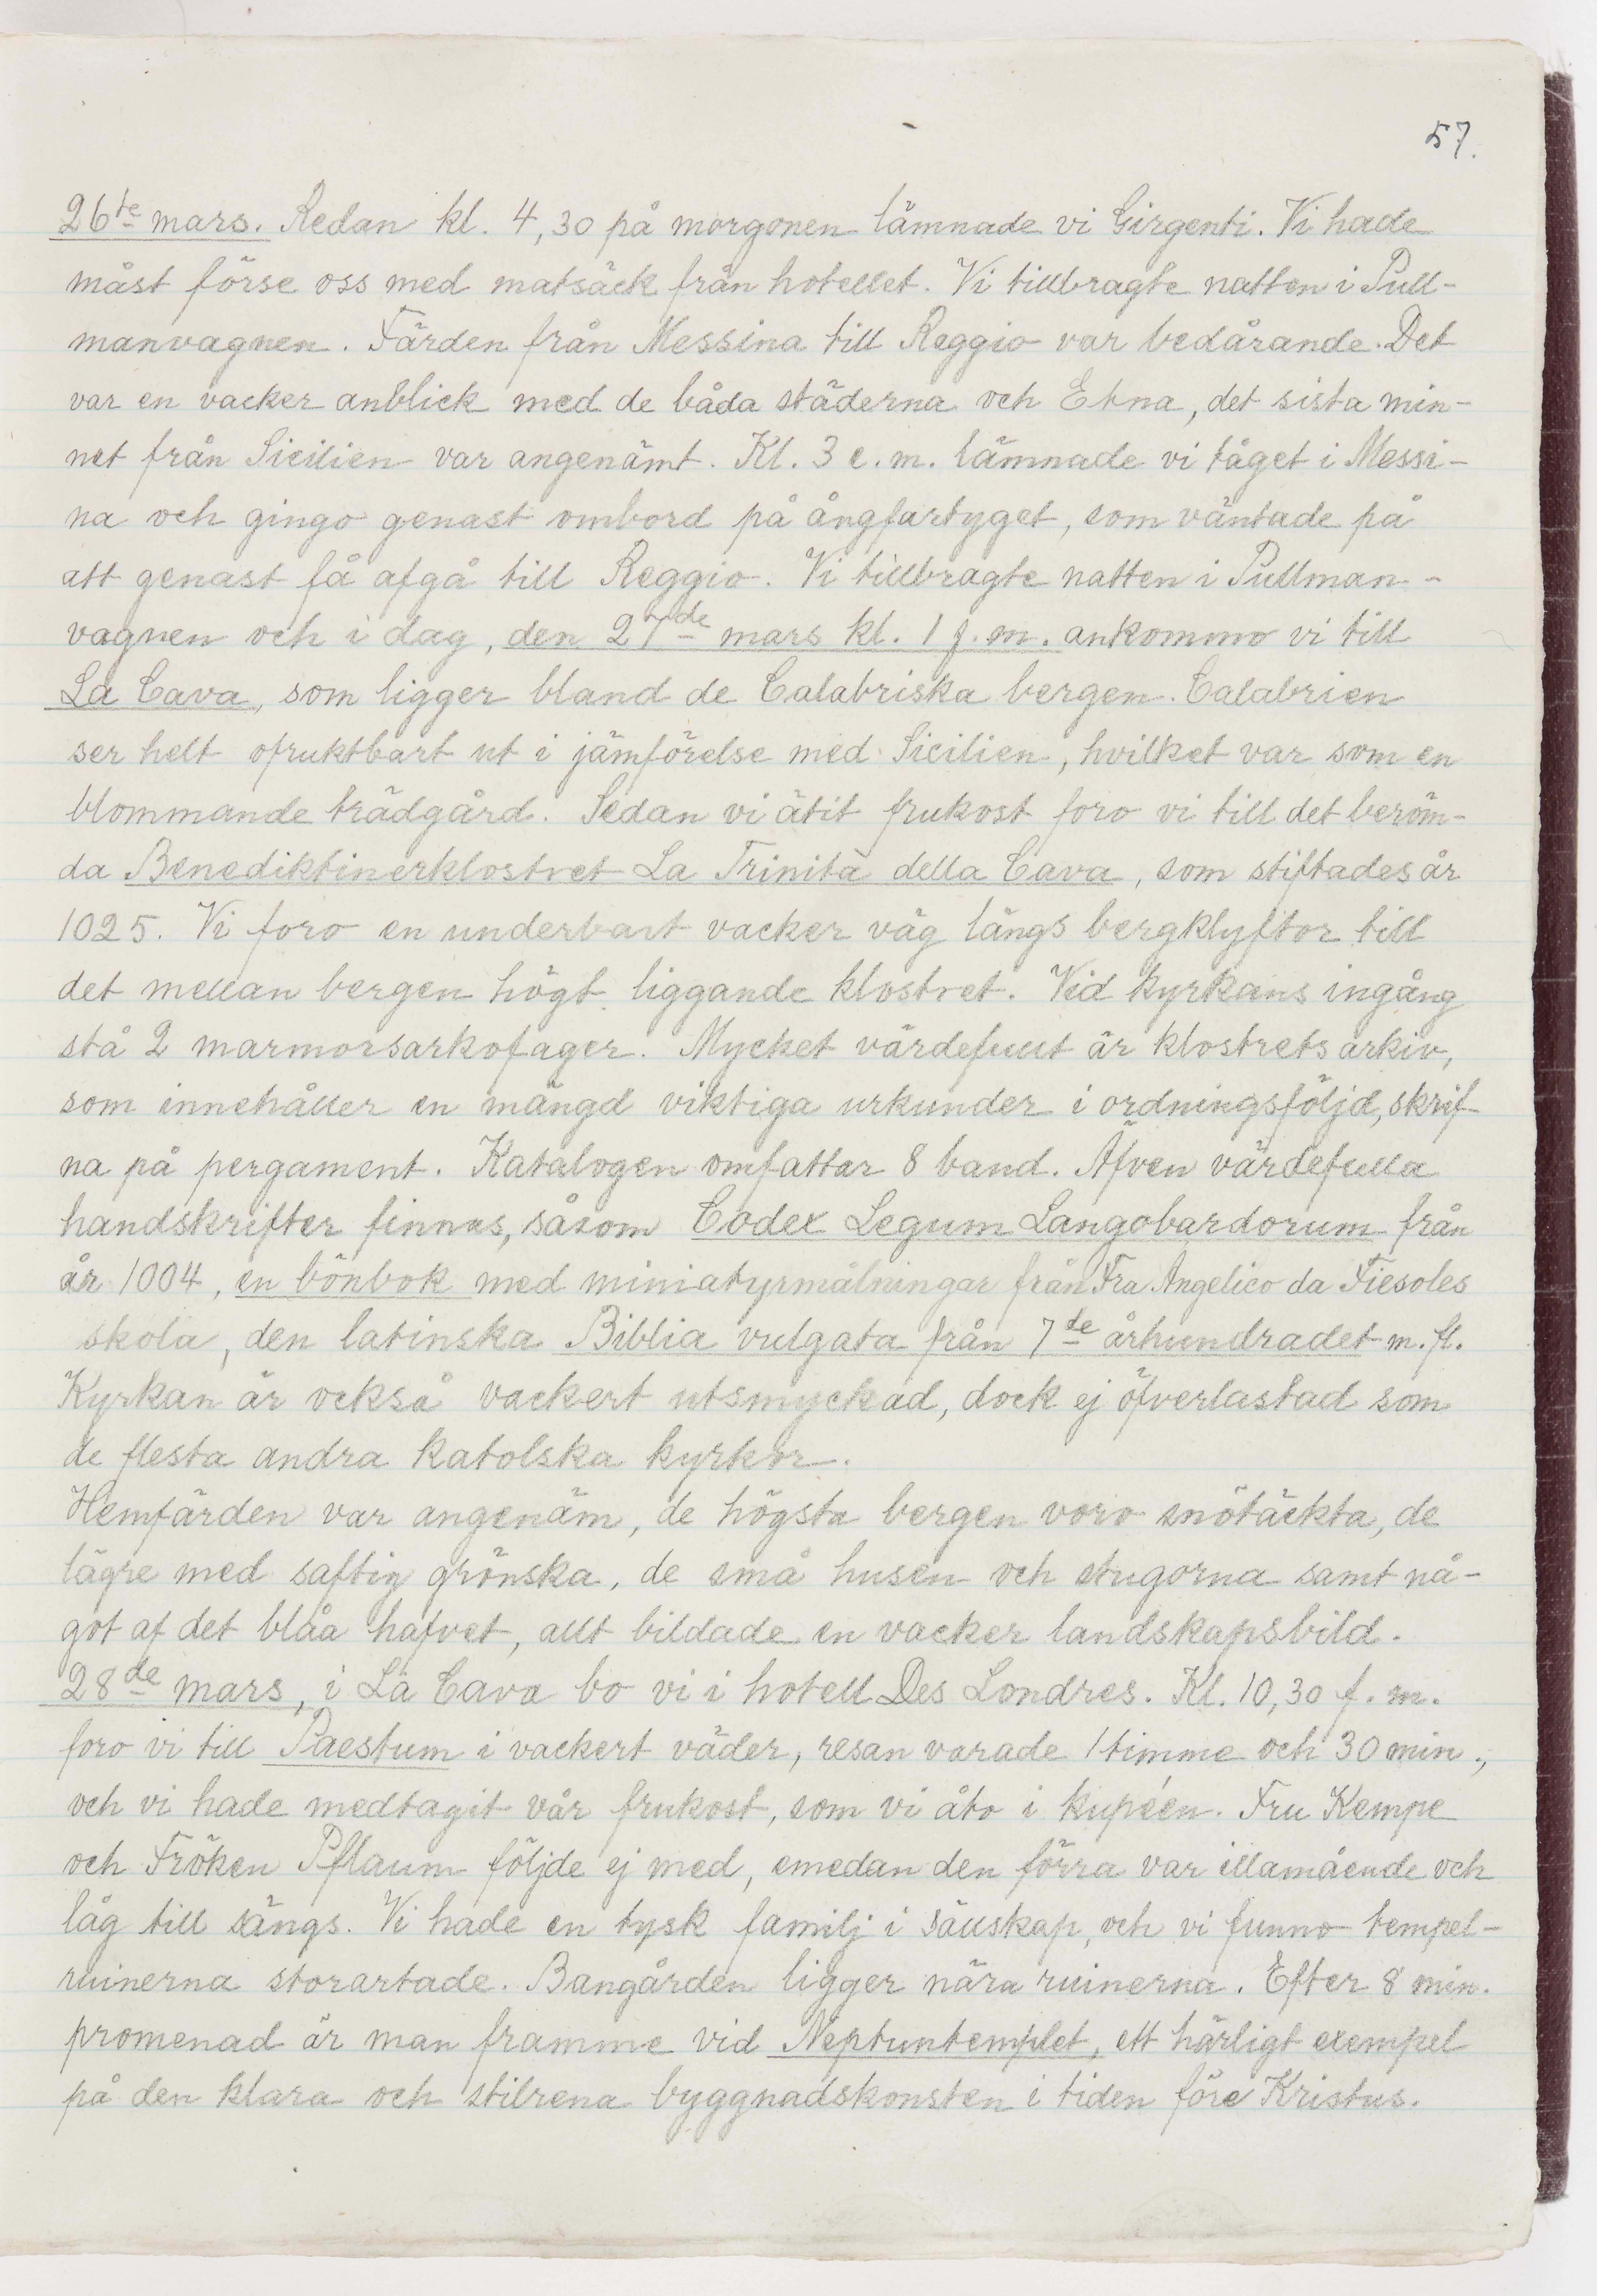 57.
26te mars. Redan kl. 4,30 på morgonen lämnade vi Girgenti. Vi hade
måst förse oss med matsäck från hotellet. Vi tillbragte natten i Pull-
manvagnen. Färden från Messina till Reggio var bedårande. Det
var en vacker anblick med de båda städerna och Etna, det sista min-
net från Sicilien var angenämt. Kl. 3 e.m. lämnade vi tåget i Messi-
na och gingo genast ombord på ångfartyget, som väntade på
att genast få afgå till Reggio. Vi tillbragte natten i Pullman-
vagnen och i dag, den 27de mars kl. 1 f.m. ankommo vi till
La Cava, som ligger bland de Calabriska bergen. Calabrien
ser helt ofruktbart ut i jämförelse med Sicilien, hvilket var som en
blommande trädgård. Sedan vi ätit frukost foro vi till det beröm-
da Benediktinerklostret La Trinità della Cava, som stiftades år
1025. Vi foro en underbart vacker väg längs bergklyftor till
det mellan bergen högt liggande klostret. Vid kyrkans ingång
stå 2 marmorsarkofager. Mycket värdefullt är klostrets arkiv,
som innehåller en mängd viktiga urkunder i ordningsföljd, skrif-
na på pergament. Katalogen omfattar 8 band. Äfven värdefulla
handskrifter finnas, såsom Codex Legum Langobardorum från
år 1004, en bönbok med miniatyrmålningar från Fra Angelico da Fiesoles
skola, den latinska Biblia vulgata från 7de århundradet m.fl.
Kyrkan är också vackert utsmyckad, dock ej öfverlastad som
de flesta andra katolska kyrkor.
Hemfärden var angenäm, de högsta bergen voro snötäckta, de
lägre med saftig grönska, de små husen och stugorna samt nå-
got af det blåa hafvet, allt bildade en vacker landskapsbild.
28de mars, i La Cava bo vi i hotell Des Londres. Kl. 10,30 f.m.
foro vi till Paestum i vackert väder, resan varade 1 timme och 30 min.,
och vi hade medtagit vår frukost, som vi åto i kupéen. Fru Kempe
och Fröken Pflaum följde ej med, emedan den förra var illamående och
låg till sängs. Vi hade en tysk familj i sällskap, och vi funno tempel-
ruinerna storartade. Bangården ligger nära ruinerna. Efter 8 min.
promenad är man framme vid Neptuntemplet, ett härligt exempel
på den klara och stilrena byggnadskonsten i tiden före Kristus.